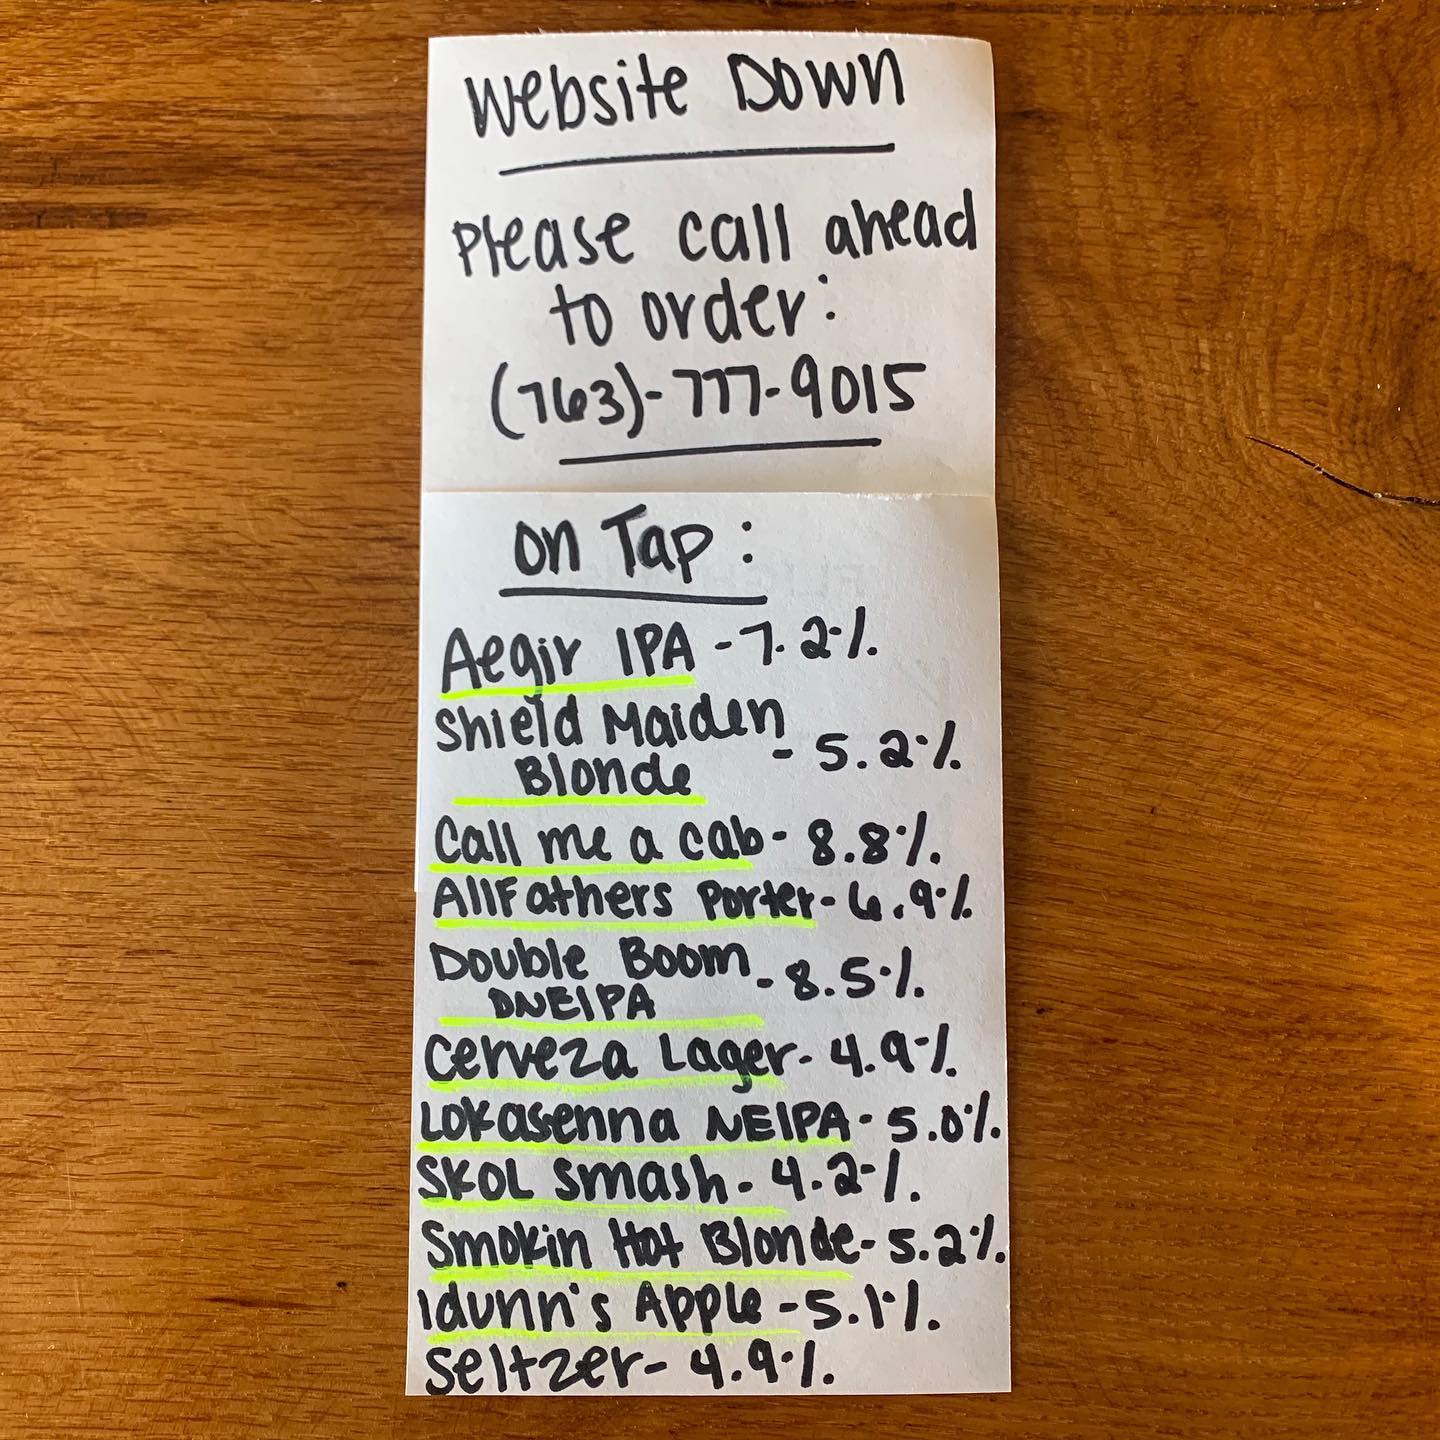 Website Down
Please call ahead
to order:
(763)-777-9015
On Tap:
Aegir IPA - 7.2%
Shield Maiden
Blonde - 5.2%
Call me a cab - 8.8%
AllFathers Porter - 6.9%
Double Boom
DNEIPA - 8.5%
Cerveza Lager - 4.9%
Lokasenna NEIPA - 5.0%
SKOL Smash - 4.2%
Smokin Hot Blonde - 5.2%
Idunn's Apple - 5.1%
Seltzer - 4.9%